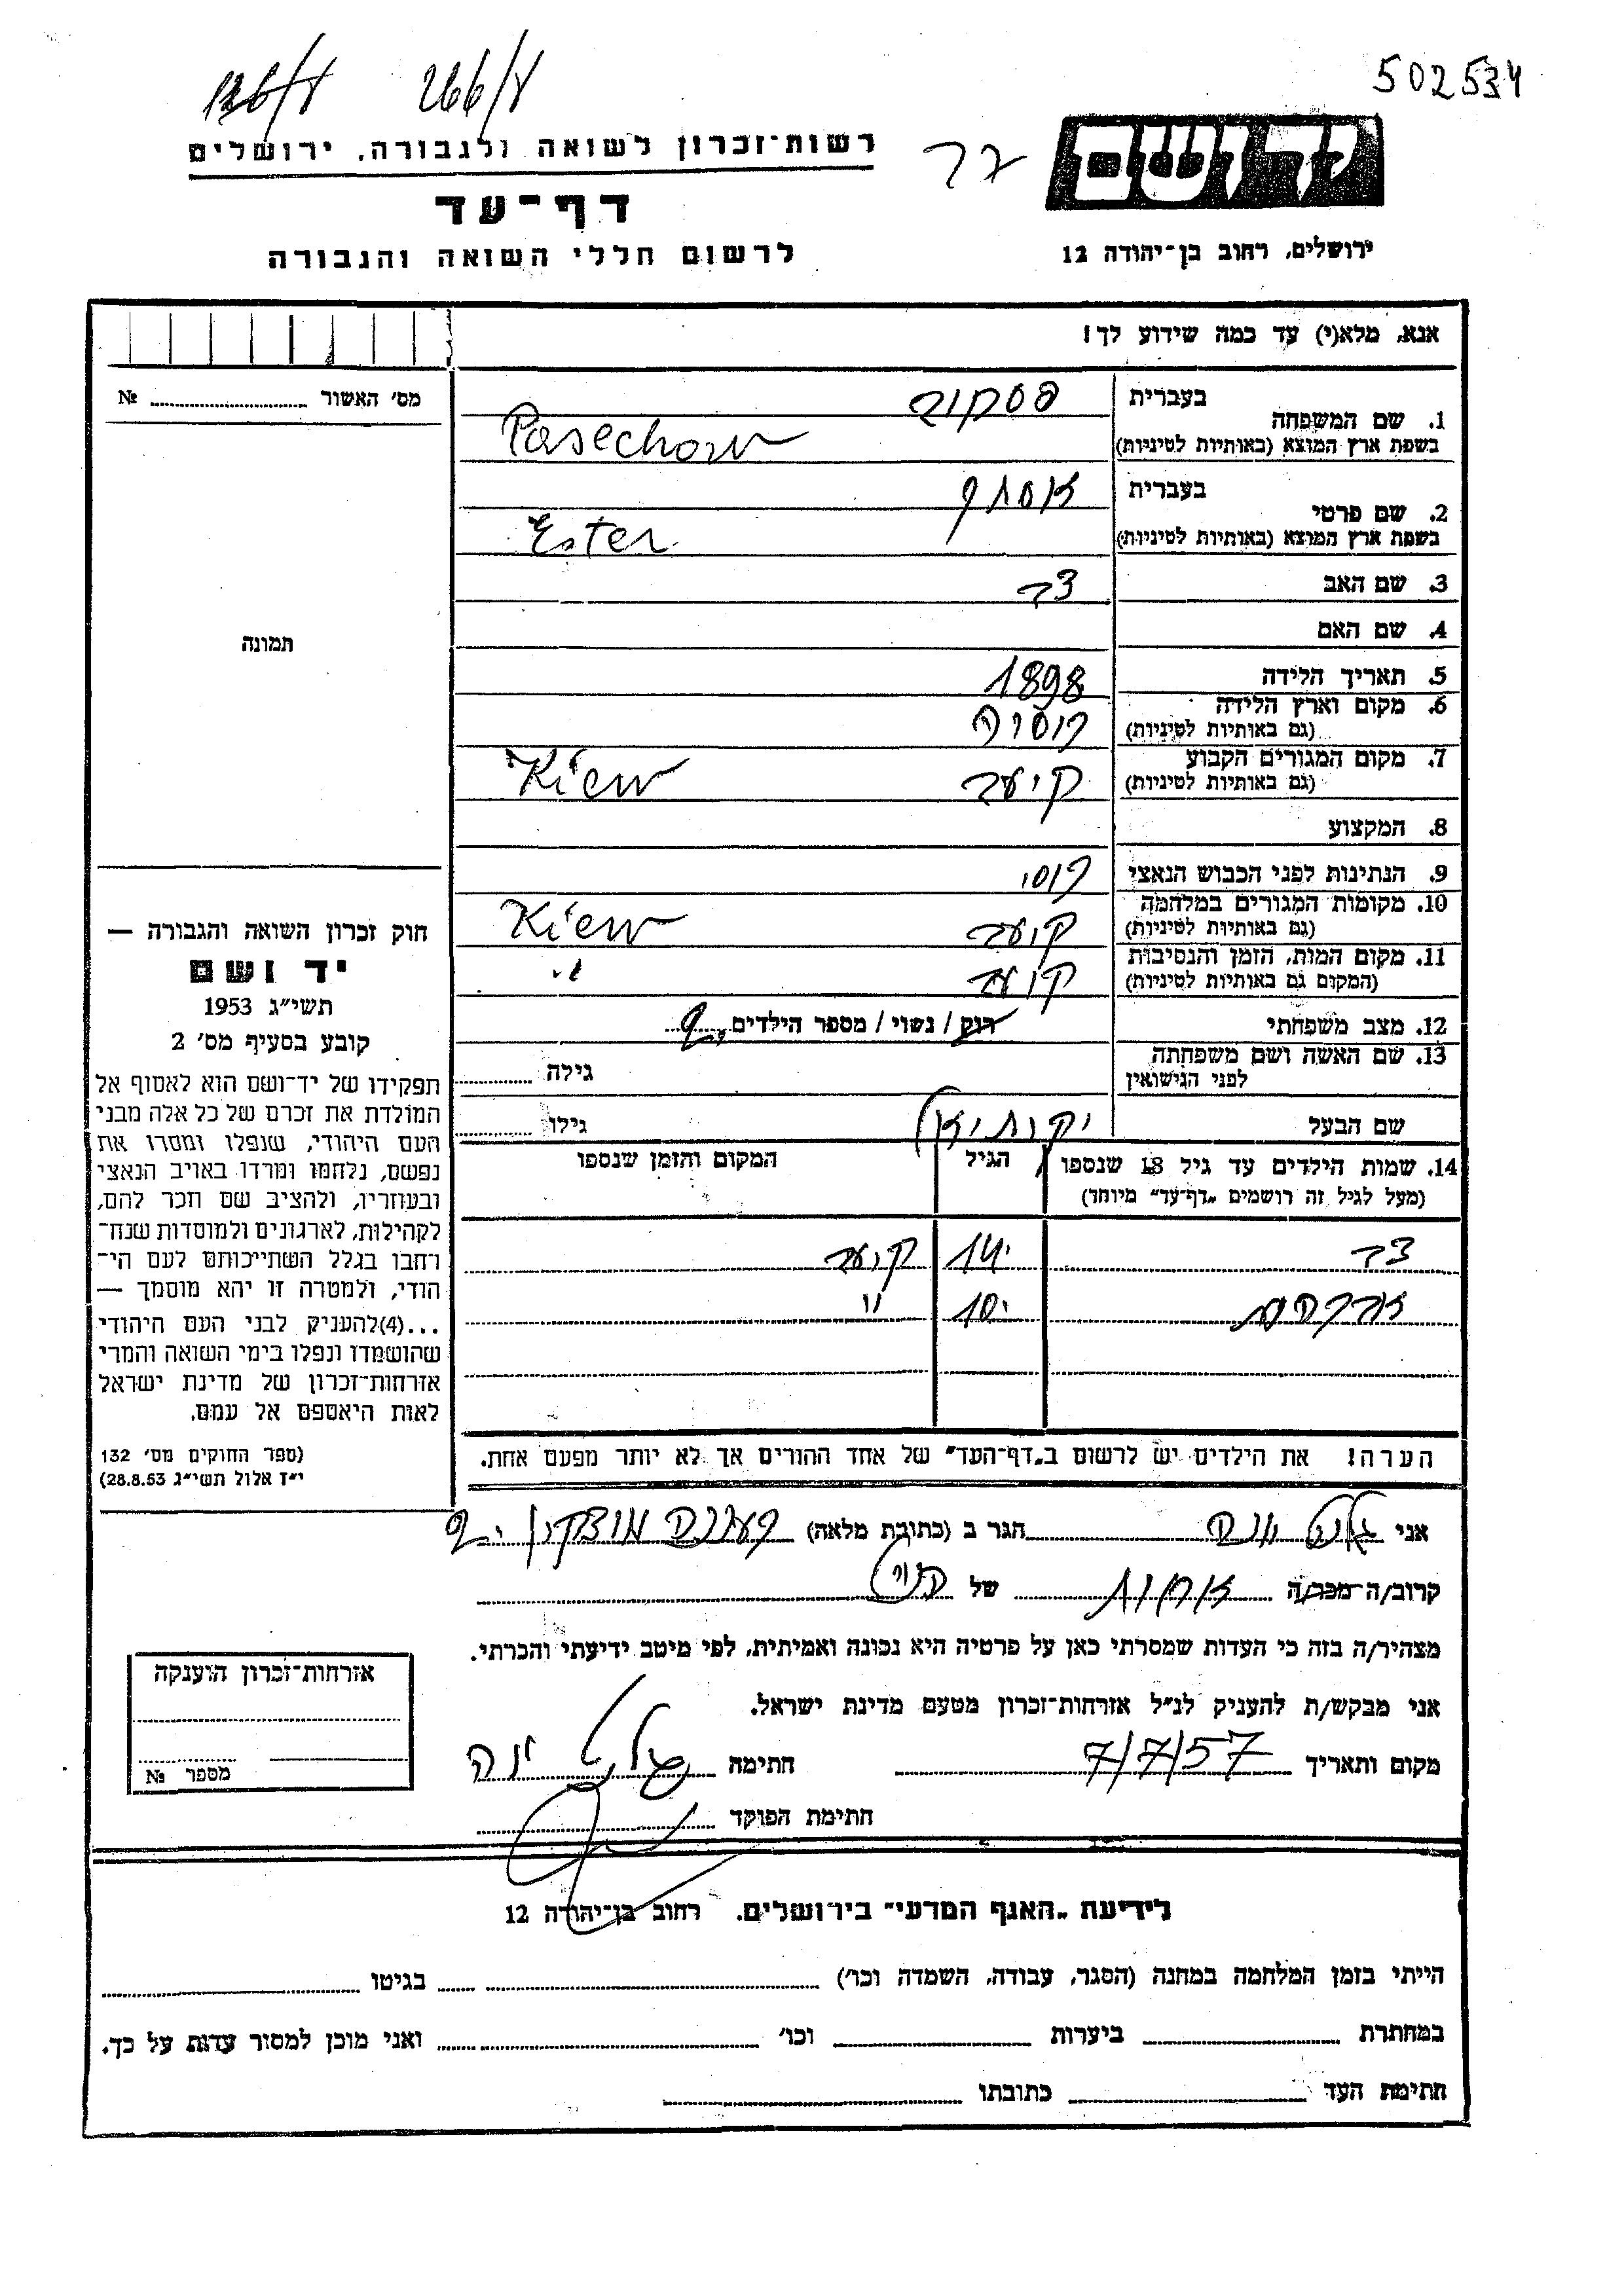 136/8 266/8
502534
רשות־זכרון לשואה ולגבורה, ירושלים
יד ושם
דף־עד
לרשום חללי השואה והגבורה
ירושלים, רחוב בן־יהודה 12
אנא, מלא(י) עד כמה שידוע לך!
מס׳ האשור № 
1. שם המשפחה
בעברית פסקוב
בשפת ארץ המוצא (באותיות לטיניות) Pasechow
2. שם פרטי
בעברית אסתר
בשפת ארץ המוצא (באותיות לטיניות) Ester
3. שם האב
4. שם האם
5. תאריך הלידה 1898
6. מקום וארץ הלידה
(גם באותיות לטיניות) רוסיה
7. מקום המגורים הקבוע
(גם באותיות לטיניות) קיעב Kiew
8. המקצוע
9. הנתינות לפני הכבוש הנאצי רוסי
10. מקומות המגורים במלחמה
(גם באותיות לטיניות) קיעב Kiew
11. מקום המות, הזמן והנסיבות
(המקום גם באותיות לטיניות) קיעב "
12. מצב משפחתי רוק / נשוי / מספר הילדים
13. שם האשה ושם משפחתה
לפני הנישואין גילה
שם הבעל יקותיאל גילו
14. שמות הילדים עד גיל 18 שנספו הגיל המקום והזמן שנספו
(מעל לגיל זה רושמים „דף־עד״ מיוחד)
14 קיעב
10 "
הערה! את הילדים יש לרשום ב„דף־העד״ של אחד ההורים אך לא יותר מפעם אחת.
תמונה
חוק זכרון השואה והגבורה —
יד ושם
תשי״ג 1953
קובע בסעיף מס׳ 2
תפקידו של יד־ושם הוא לאסוף אל
המולדת את זכרם של כל אלה מבני
העם היהודי, שנפלו ומסרו את
נפשם, נלחמו ומרדו באויב הנאצי
ובעוזריו, ולהציב שם וזכר להם,
לקהילות, לארגונים ולמוסדות שנח־
רחבו בגלל השתייכותם לעם הי־
הודי, ולמטרה זו יהא מוסמך —
...(4)להעניק לבני העם היהודי
שהושמדו ונפלו בימי השואה והמרי
אזרחות־זכרון של מדינת ישראל
לאות היאספם אל עמם.
(ספר החוקים מס׳ 132
י״ז אלול תשי״ג 28.8.53)
אני הגר ב (כתובת מלאה) מוצקין
קרוב/ה מכר/ה אחות של
מצהיר/ה בזה כי העדות שמסרתי כאן על פרטיה היא נכונה ואמיתית, לפי מיטב ידיעתי והכרתי.
אני מבקש/ת להעניק לנ״ל אזרחות־זכרון מטעם מדינת ישראל.
מקום ותאריך 7/7/57 חתימה
חתימת הפוקד
אזרחות־זכרון הוענקה
מספר №
לידיעת „האגף המדעי״ בירושלים, רחוב בן־יהודה 12
הייתי בזמן המלחמה במחנה (הסגר, עבודה, השמדה וכו׳) בגיטו
במחתרת ביערות וכו׳ ואני מוכן למסור עדות על כך.
חתימת העד כתובתו